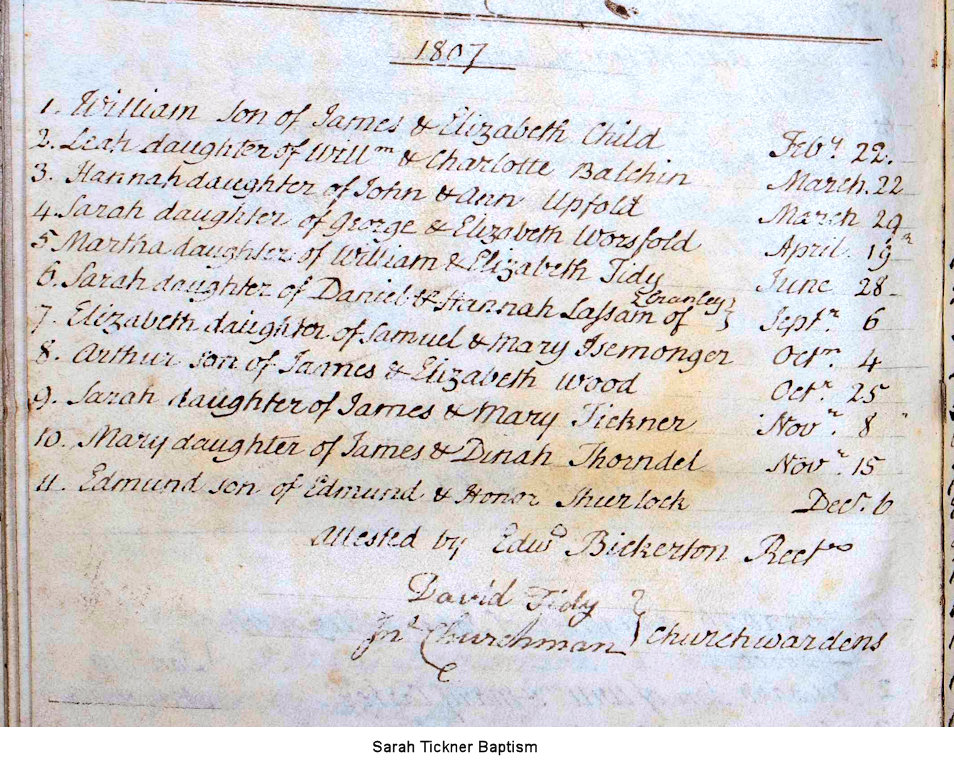 1807
1. William son of James & Elizabeth Child Feby. 22.
2. Leah daughter of Willm & Charlotte Balchin March. 22
3. Hannah daughter of John & Ann Upfold March 29
4. Sarah daughter of George & Elizabeth Worsfold April. 19th
5 Martha daughter of William & Elizabeth Tidy June 28
6. Sarah daughter of Daniel & Hannah Lassam of Cranley Septr. 6
7. Elizabeth daughter of Samuel & Mary Isemonger Octr. 4
8. Arthur son of James & Elizabeth Wood Octr. 25
9. Sarah daughter of James & Mary Tickner Novr. 8
10. Mary daughter of James & Dinah Thorndel Novr. 15
11. Edmund son of Edmund & Honor Thurlock Decr. 6
Attested by Edwd Bickerton Rector
David Tidy
Jno. Churchman } Churchwardens
Sarah Tickner Baptism